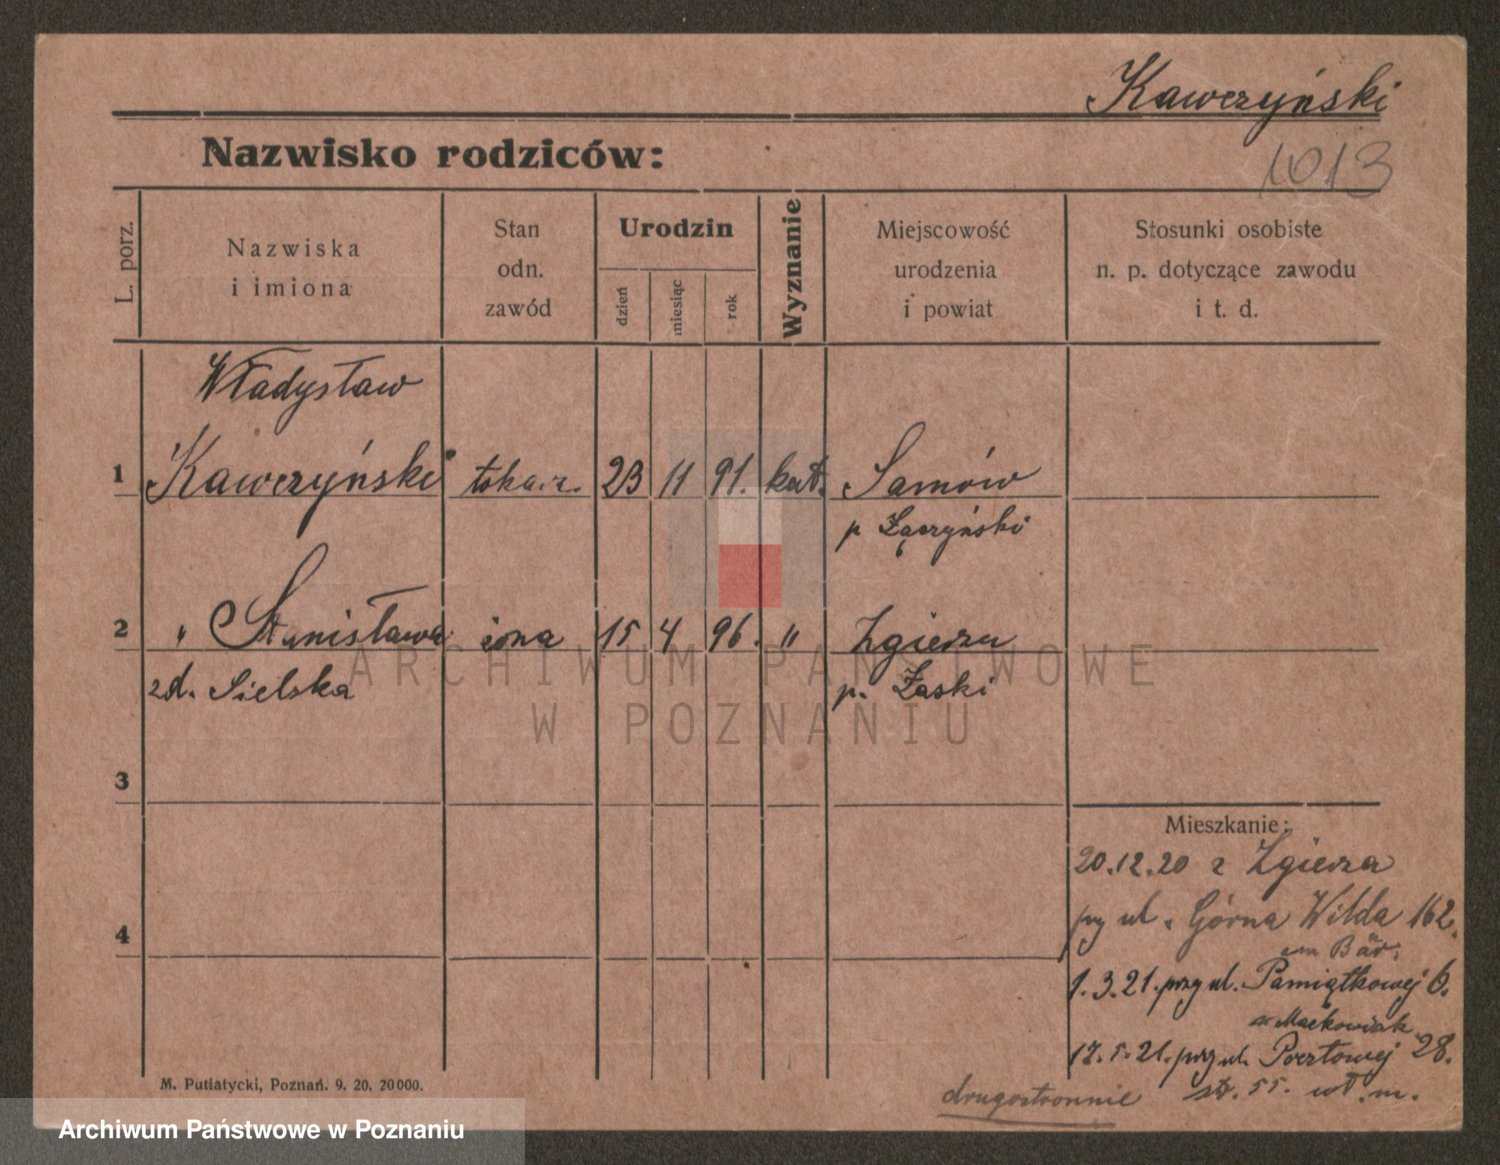 Kawczyński
1013
Nazwisko rodziców:
L. porz.
Nazwiska
i imiona
Stan
odn.
zawód
Urodzin
dzień
miesiąc
rok
Wyznanie
Miejscowość
urodzenia
i powiat
Stosunki osobiste
n. p. dotyczące zawodu
i t. d.
Władysław
1 Kawczyński tokarz. 23 11 91. kat. Samów
p Łączyński
2 " Stanisława żona 15 4 96. " Zgierzu
zd. Sielska p. Łaski
ARCHIWUM PAŃSTWOWE
W POZNANIU
3
Mieszkanie:
20.12.20 z Zgierza
przy ul. Górna Wilda 162.
4
Bär.
1.3.21. przy ul. Pamiątkowej 6.
Maćkowiak
17.5.21. przy ul. Pocztowej 28.
str. 55. wł. m.
drugostronnie
M. Putiatycki, Poznań. 9. 20. 20000.
Archiwum Państwowe w Poznaniu